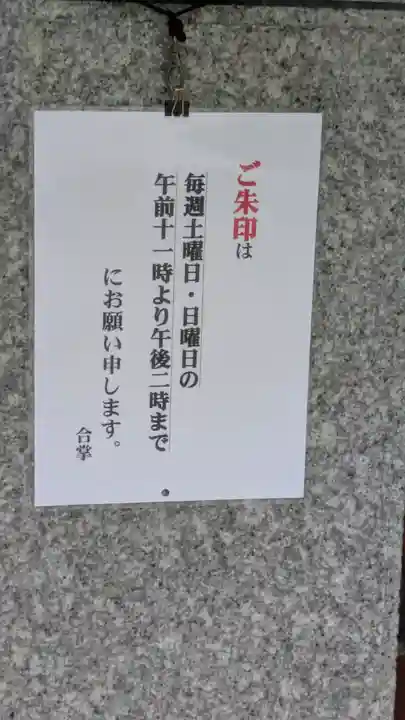 ご朱印は
毎週土曜日・日曜日の
午前十一時より午後二時まで
にお願い申します。
合掌